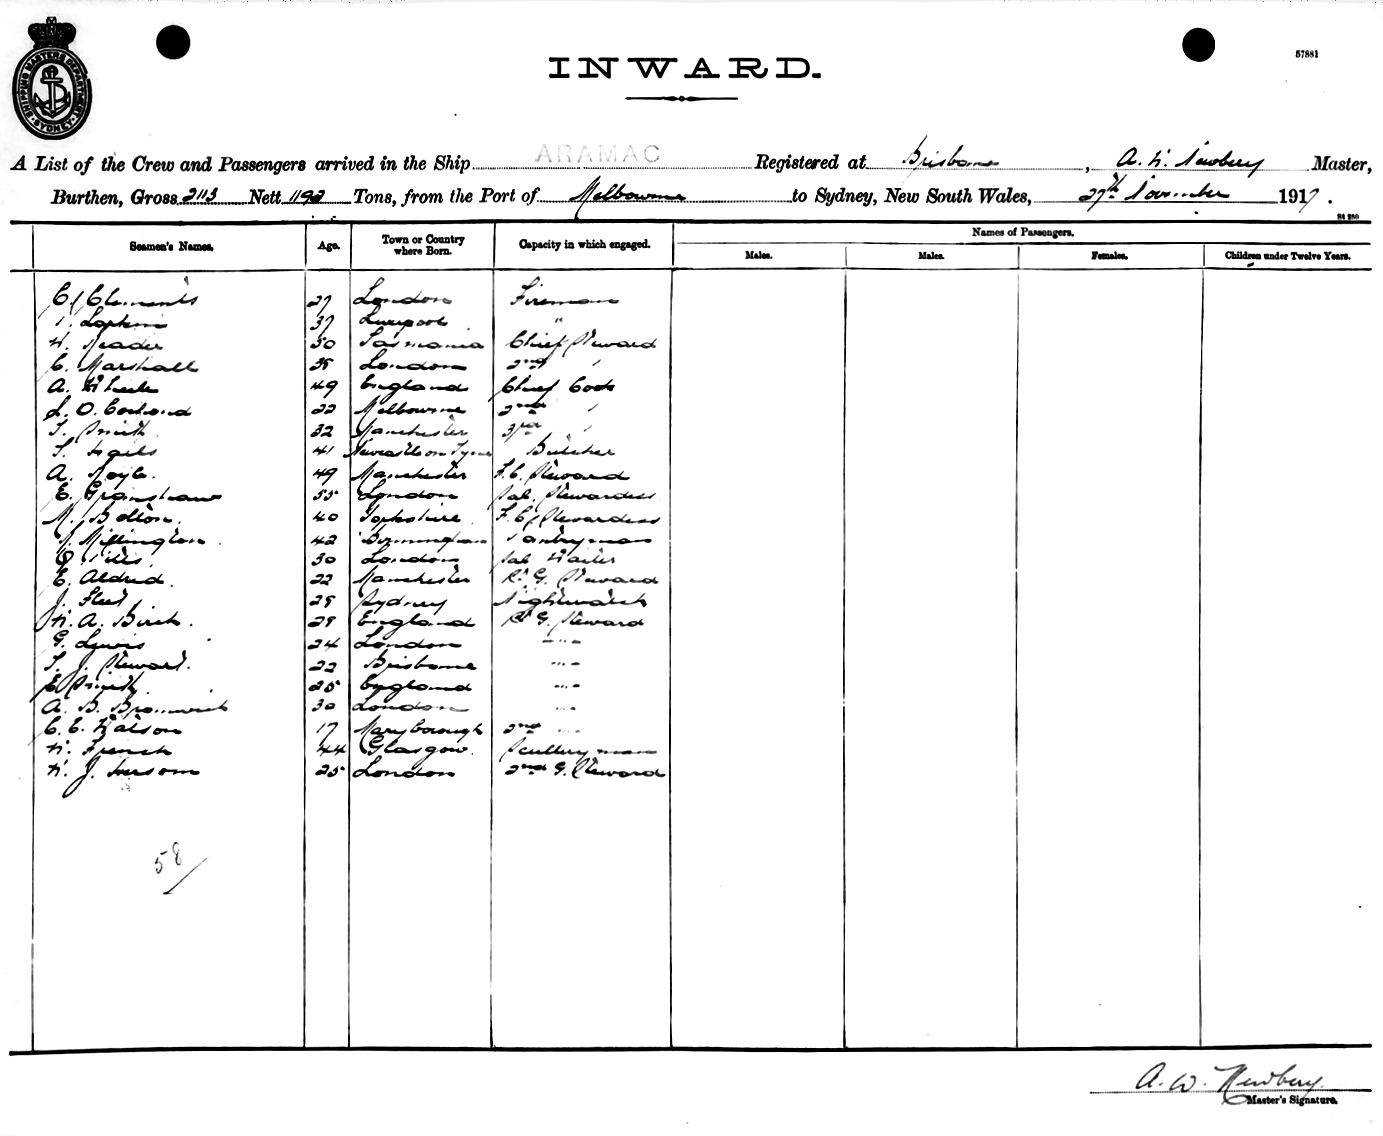 SHIPPING MASTERS DEPARTMENT SYDNEY
57881
INWARD.
A List of the Crew and Passengers arrived in the Ship ARAMAC Registered at Brisbane, A. W. Newbery Master,
Burthen, Gross 2113 Nett 1192 Tons, from the Port of Melbourne to Sydney, New South Wales, 27th November 1917.
Names of Passengers.
Seamen's Names. Age. Town or Country where Born. Capacity in which engaged. Males. Males. Females. Children under Twelve Years.
C. Clements 27 London Fireman
37 Liverpool "
W. Reader 50 Tasmania Chief Steward
C. Marshall London 2nd "
A. 49 England Chief Cook
L. O. 22 Melbourne 2nd "
T. Smith 32 Manchester 3rd "
T. Hails 41 Newcastle on Tyne Butcher
A. 49 Manchester F. C. Steward
E. Granshaw 55 London Sal. Stewardess
M. Bolton 40 Yorkshire F. C. Stewardess
Millington 42 Birmingham Pantryman
30 London Sal. Waiter
E. Aldred 22 Manchester G. Steward
J. Fleet Sydney Nightwatch
W. A. Birch England G. Steward
G. Lewis 24 London "
T. J. Stewart 22 Brisbane "
E. Smith 25 England "
A. B. Bromwich 30 London "
C. E. Watson 17 Maryborough 2nd "
W. French 44 Glasgow Scullery man
W. J. 25 London 2nd G. Steward
58/
A. W. Newbery
Master's Signature.